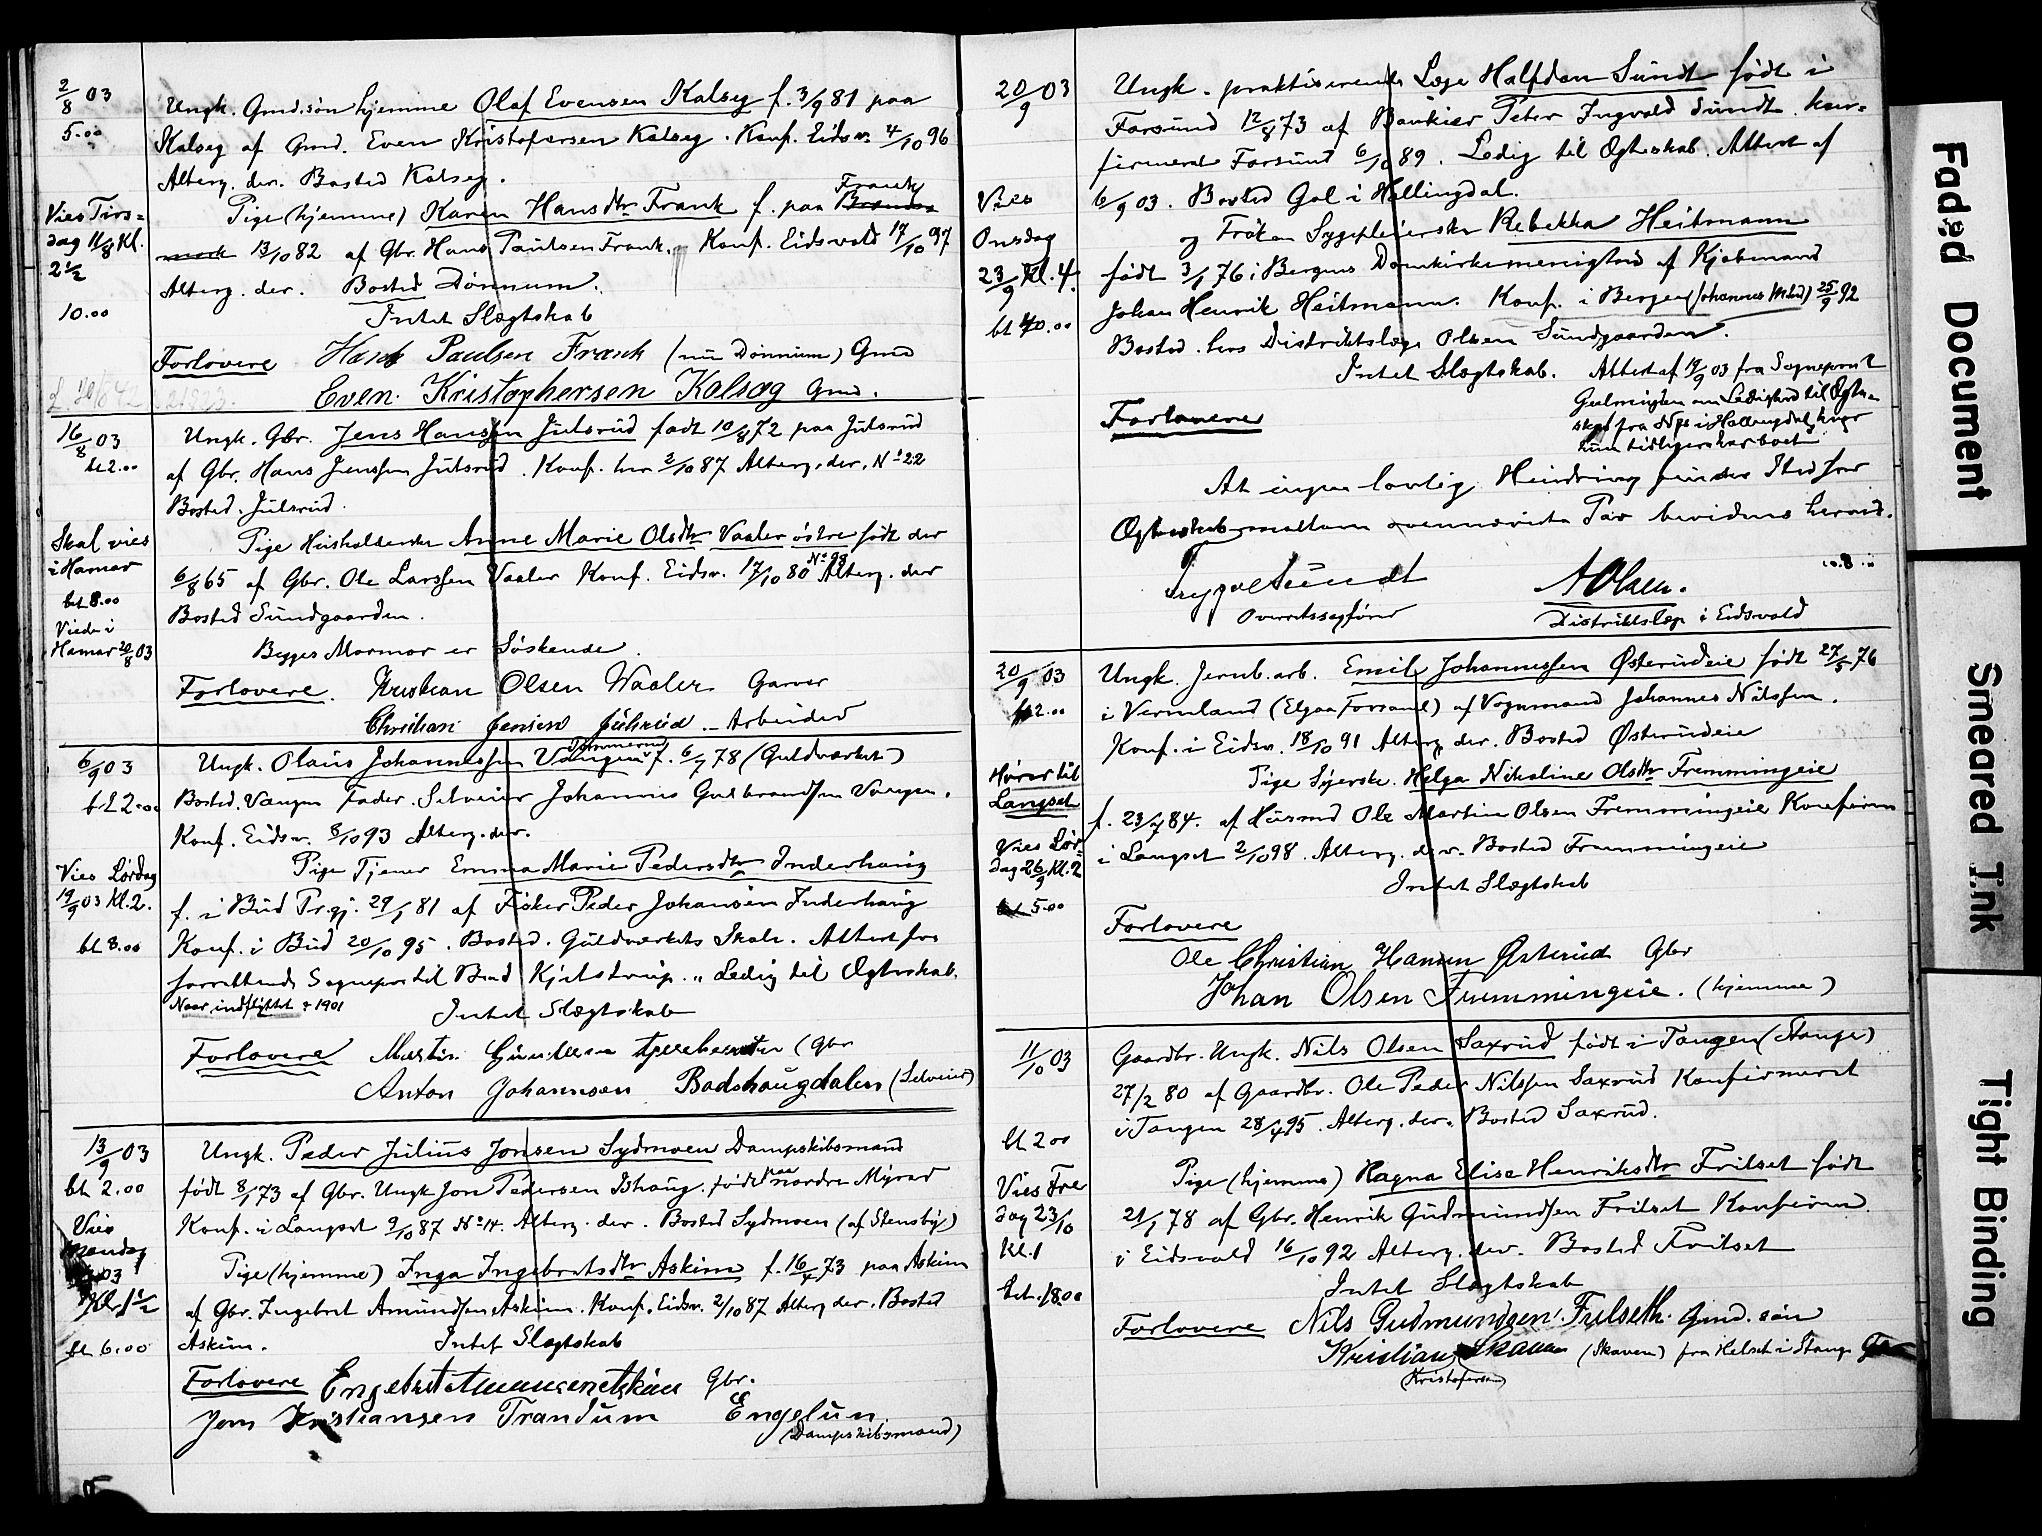 2/8 03
5.00
Ungk. Gmd.søn hjemme Olaf Evensen Kalseg f. 3/9 81 paa
Kalseg af Gmd. Even Kristofersen Kalseg. Konf. Eidsv. 4/10 96
Alterg. der. Bosted Kalseg.
Vies Tirs=
dag 11/8 Kl.
2 1/2
10.00
Pige (hjemme) Karen Hansdtr Frank f. paa Frank
13/10 82 af Gbr. Hans Paulsen Frank. Konf. Eidsvold 17/10 97
Alterg. der. Bosted Dönnum.
Intet Slægtskab
Forlovere Hans Paulsen Frank (nu Dönnum) Gmd
Even Kristophersen Kalsæg Gmd.
16/8 03
bt 2.00
Ungk. Gbr. Jens Hansen Julsrud født 10/8 72 paa Julsrud
af Gbr. Hans Jenssen Julsrud. Konf. her 2/10 87 Alterg. der. No 22
Bosted Julsrud.
Skal vies
i Hamar
bet 8.00
Viede i
Hamar 20/8 03
Pige Husholderske Anne Marie Olsdtr Vaaler östre født der
6/8 65 af Gbr. Ole Larssen Vaaler Konf. Eidsv. 17/10 80 No 98 Alterg. der
Bosted Sundgaarden.
Begges Mormor er Söskende.
Forlovere. Kristian Olsen Waaler Garver
Christian Jensen Julsrud - Arbeider
6/9 03
bt 2.00
Ungk. Olaus Johannessen Vangen f. 6/7 78 (Guldværket)
Bosted. Vangen Fader. Selveier Johannes Gulbrandsen Vangen.
Konf. Eidsv. 8/10 93 Alterg. der.
Vies Lørdag
19/9 03 Kl. 2.
bt 8.00
Pige Tjener Emma Marie Pedersdtr Inderhaug
f. i Bud Prgj. 29/1 81 af Fisker Peder Johansen Inderhaug
Konf. i Bud 20/10 95. Bosted. Guldværkets Skole. Attest fra
forrettende Sogneprest til Bud Kjelstrup. „Ledig til Ægteskab.
Naar indflyttet ? 1901
Intet Slægtskab
Forlovere Martin (Gbr
Anton Johannsen Badshaugdalen (Selveier)
13/9 03
bt 2.00
Ungk. Peder Julius Jonsen Sydmoen Dampskibsmand
født 8/1 73 af Gbr. Ungk Jon Pedersen Ishaug. født paa nordre Myrer
Konf. i Langset 9/10 87 No 14. Alterg. der. Bosted Sydmoen (af Stensby)
Vies
Mandag
03
Kl. 1 1/2
bt 6.00
Pige (hjemme) Inga Ingebretsdtr Askim f. 16/4 73 paa Askim
af Gbr. Ingebret Amundsen Askim. Konf. Eidsv. 2/10 87 Alterg. der. Bosted
Askim.
Intet Slægtskab
Forlovere Engebret Amunsen Askim Gbr.
Jens Kristiansen Trandum Engelun.
(Dampskibsmand)
20/9 03
Ungk. praktiserende Læge Halfdan Sundt født i
Farsund 12/8 73 af Bankier Peter Ingvald Sundt. kon=
firmeret Farsund 6/10 89. Ledig til Ægteskab. Attest af
6/9 03. Bosted Gol i Hallingdal.
Vies
Onsdag
23/9 Kl. 4.
bt 40.00
og Frøken Sygepleierske Rebekka Heitmann
født 3/1 76 i Bergens Domkirkemenighed af Kjøbmand
Johan Henrik Heitmann. Konf. i Bergen (Johannes Mhed) 25/9 92
Bosted. hos Distriktslæge Olsen Sundgaarden.
Intet Slægtskab. Attest af 17/9 03 fra Sogneprest
om Ledighed til Ægte-
skab fra Næs i Hallingdal hvor
hun tidligere har boet
Forlovere
At ingen lovlig Hindring finder Sted for
Ægteskab mellem ovennævnte Par bevidnes herved.
Trygve Sundt A Olsen.
Overretssagfører Distriktslæge i Eidsvold
20/9 03
bt 2.00
Ungk. Jernb. arb. Emil Johannessen Østerudeie født 27/5 76
i Vermland (Elgaa Forsaml) af Vognmand Johannes Nilssen.
Konf. i Eidsv. 18/10 91 Alterg. der. Bosted Østerudeie
Hører til
Langset
Vies Lør-
dag 26/9 Kl. 2
bt 5.00
Pige Syerske. Helga Nikoline Olsdtr Fremmingeie
f. 23/7 84. af Husmd Ole Martin Olsen Fremmingeie Konfirm
i Langset 2/10 98. Alterg. der. Bosted Fremmingeie
Intet Slægtskab
Forlovere
Ole Christian Hansen Østerud Gbr
Johan Olsen Fremmingeie. (hjemme)
11/10 03
bt 2.00
Gaardbr. Ungk. Nils Olsen Saxrud født i Tangen (Stange)
27/2 80 af Gaardbr. Ole Peder Nilssen Saxrud Konfirmeret
i Tangen 28/4 95. Alterg. der. Bosted Saxrud.
Vies Fre
dag 23/10
Kl. 1
bet. 18.00
Pige (hjemme) Magna Elise Henriksdtr Frilset født
21/1 78 af Gbr. Henrik Gudmundsen Frilset Konfirm.
i Eidsvold 16/10 92 Alterg. der. Bosted Frilset
Intet Slægtskab
Forlovere Nils Gudmundsen Frilseth. Gmd. søn
Kristian Skaven (Skaven) fra Helset i Stange
(Kristofersen)
Faded Document
Smeared Ink
Tight Binding